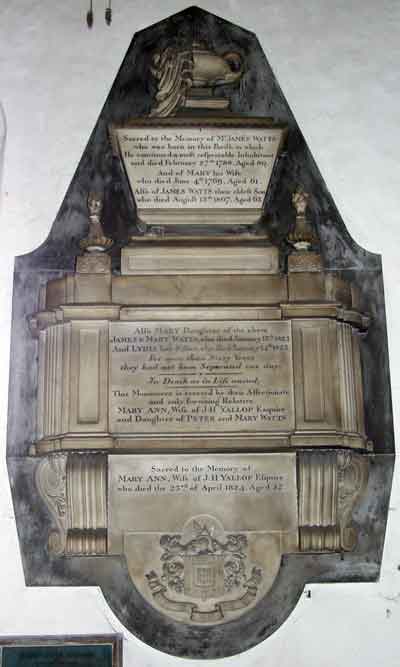 Sacred to the Memory of Mr. JAMES WATTS
who was born in this Parish in which
He continued a most respectable Inhabitant
and died February 27th 1788, Aged 80.
And of MARY his Wife
who died June 4th 1769, Aged 61.
Also of JAMES WATTS their eldest Son
who died August 13th 1807, Aged 63
Also MARY Daughter of the above
JAMES & MARY WATTS, who died January
And LYDIA who died January
For upon them Years
they had not been Separated one day:
In Death as in Life united.
This Monument is erected by their Affectionate
and only surviving Relative
MARY ANN, Wife of J.H YALLOP Esquire
and Daughter of PETER and MARY WATTS
Sacred to the Memory of
MARY ANN, Wife of J. H YALLOP Esquire
who died the 25th of April 1824, Aged